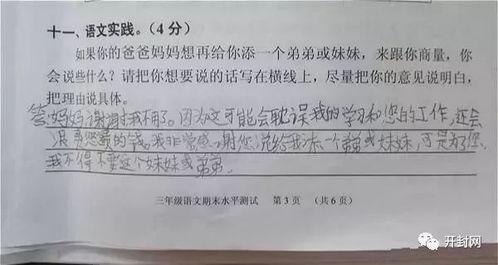 十一、语文实践。（4 分）
如果你的爸爸妈妈想再给你添一个弟弟或妹妹，来跟你商量，你
会说些什么？请把你想要说的话写在横线上，尽量把你的意见说明白，
把理由说具体。
答妈妈谢谢 我不用了。因为这可能会耽误我的学习和您的工作，还会
浪费您的钱。我非常感谢您说给我添一个弟弟或妹妹，可是为了您，
我不得不要这个妹妹或弟弟。
三年级语文期末水平测试 第 3 页 （共 6 页）
开封网